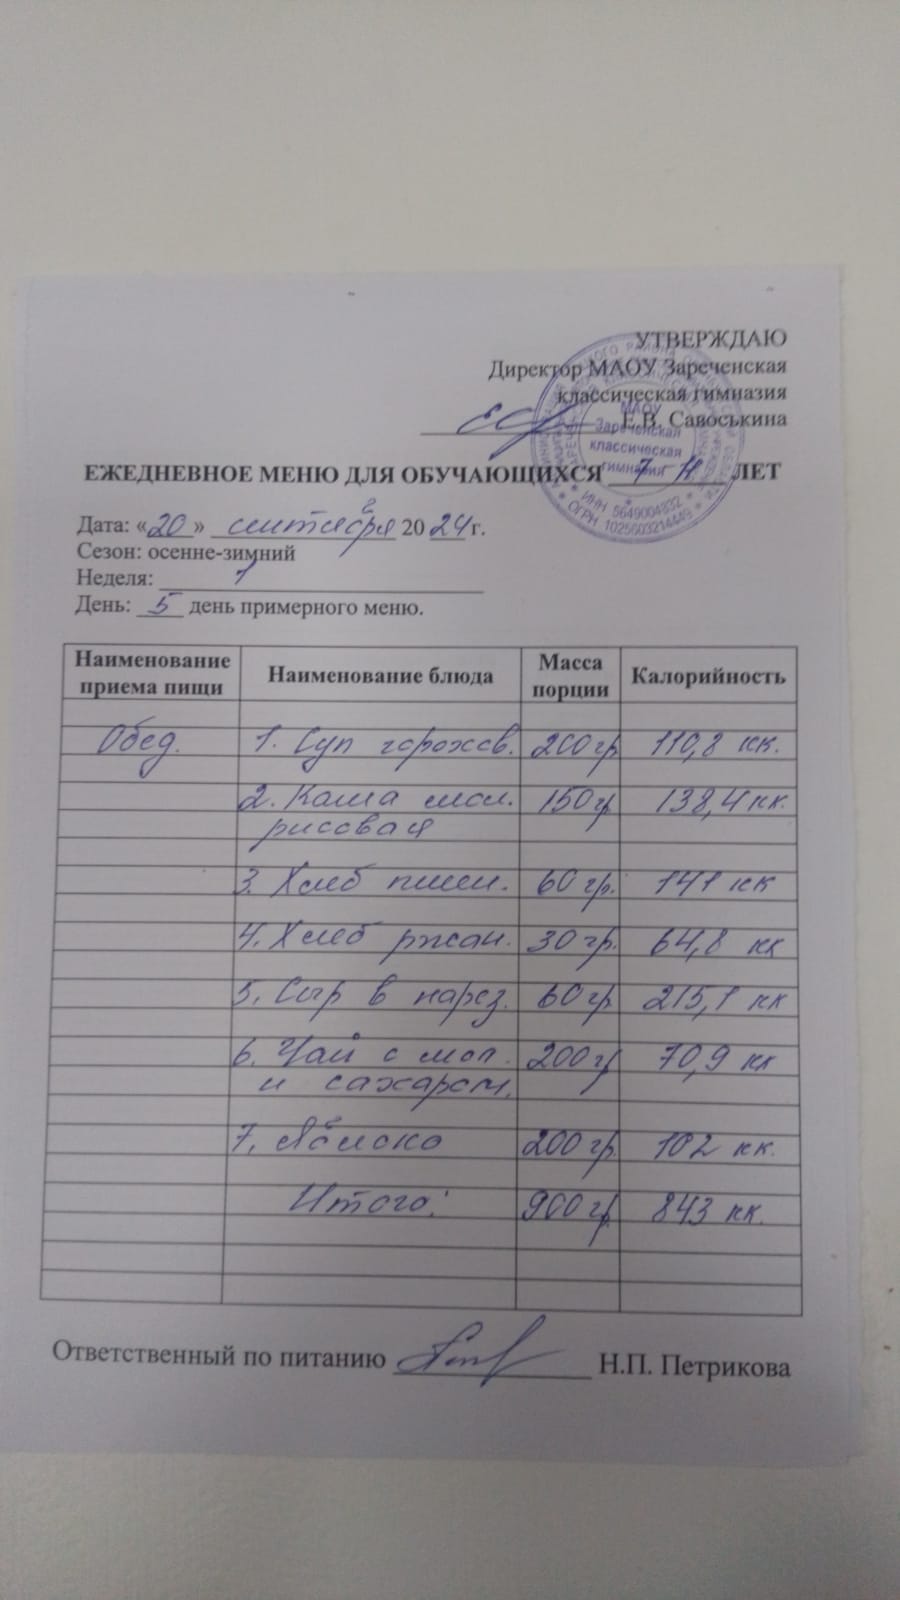 УТВЕРЖДАЮ
Директор МАОУ Зареченская
классическая гимназия
Е.В. Савоськина
МАОУ
Зареченская
классическая
гимназия
* ИНН 5649004832 *
* ОГРН 1025603214449 *
ЕЖЕДНЕВНОЕ МЕНЮ ДЛЯ ОБУЧАЮЩИХСЯ 7 - 11 ЛЕТ
Дата: «20» сентября 2024 г.
Сезон: осенне-зимний
Неделя: 1
День: 5 день примерного меню.
Наименование приема пищи Наименование блюда Масса порции Калорийность
Обед. 1. Суп горохов. 200 гр 110,8 кк.
2. Каша мол. 150 гр 138,4 кк.
рисовая
3. Хлеб пшен. 60 гр. 141 кк
4. Хлеб ржан. 30 гр. 64,8 кк
5. Сыр в нарез. 60 гр 215,1 кк
6. Чай с мол. 200 гр 70,9 кк
и сахаром.
7. Яблоко 200 гр. 102 кк.
Итого: 900 гр 843 кк.
Ответственный по питанию Н.П. Петрикова